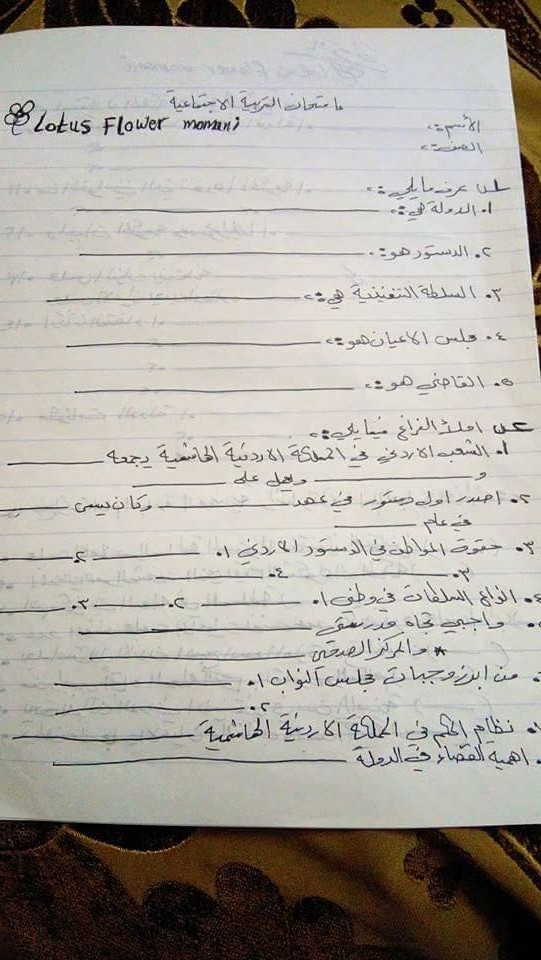 امتحان التربية الاجتماعية
Lotus Flower momani
الأسم :.
الصف :.
س1 عرف ما يلي :.
1. الدولة هي :. ________
2. الدستور هو :. ________
3. السلطة التنفيذية هي :. ________
4. مجلس الاعيان هو :. ________
5. القاضي هو :. ________
س2 املأ الفراغ فيما يلي :.
1. الشعب الاردني في المملكة الاردنية الهاشمية يجمعه ________
و ________ ويعمل على ________
2. اصدر اول دستور في عهد ________ وكان يسمى ________
في عام ________
3. حقوق المواطن في الدستور الاردني 1. ________ 2. ________
3. ________ 4. ________
4. انواع السلطات في وطني 1. ________ 2. ________ 3. ________
واجبي تجاه مدرستي ________
* والمركز الصحي ________
من ابرز وجبات مجلس النواب 1. ________
2. ________
نظام الحكم في المملكة الاردنية الهاشمية ________
اهمية القضاء في الدولة ________